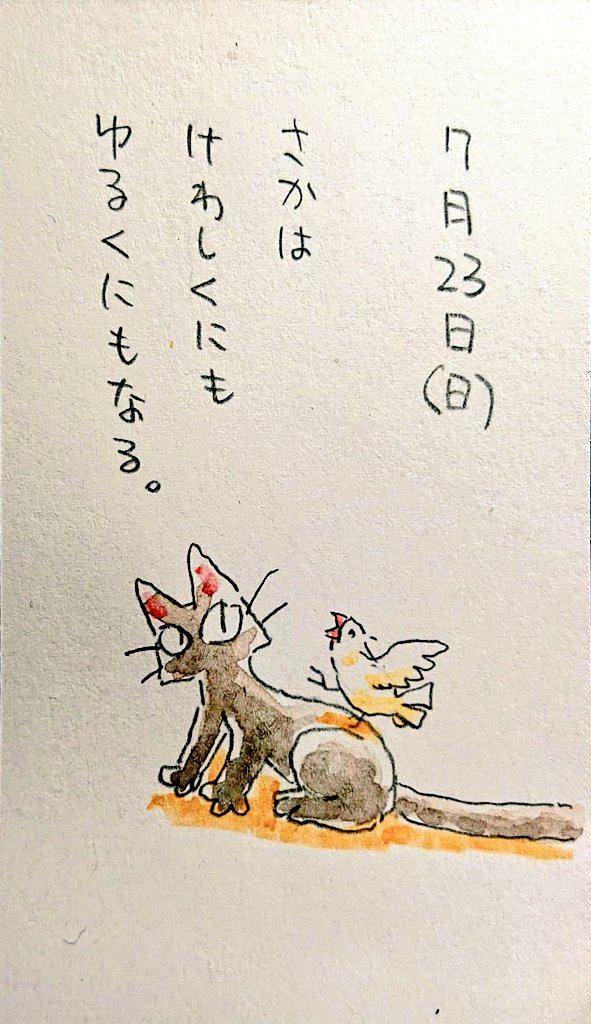 7月23日(日)
さかは
けわしくにも
ゆるくにもなる。